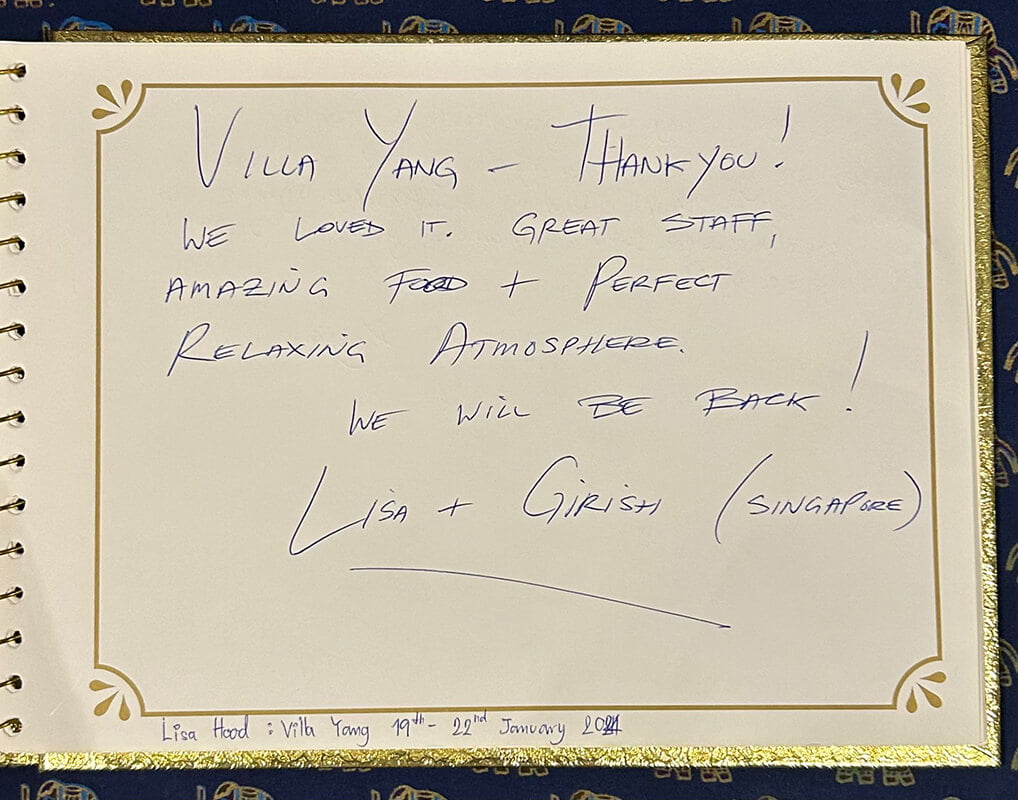 VILLA YANG – THANK YOU!
WE LOVED IT. GREAT STAFF,
AMAZING FOOD + PERFECT
RELAXING ATMOSPHERE.
WE WILL BE BACK!
LISA + GIRISH (SINGAPORE)
Lisa Hood : Villa Yang 19th - 22nd January